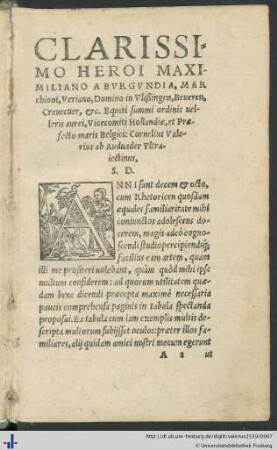 CLARISSI-
MO HEROI MAXI-
MILIANO A BVRGVNDIA, MAR
chioni, Veriano, Domino in Vlißingen, Beueren,
Creuecuer, &c. Equiti summi ordinis uel-
leris aurei, Vicecomiti Hollandiæ, et Præ-
fecto maris Belgici: Cornelius Vale-
rius ab Auduader Vltra-
iectinus,
S. D.
ANNI sunt decem & octo,
cum Rhetoricen quosdam
æquales familiaritate mihi
coniunctos adolescens do-
cerem, magis adeò cognos-
cendi studio percipiendiq;
facilius eam artem, quam
illi me profiteri uolebant, quàm quòd mihi ipse
multum considerem: ad quorum utilitatem quæ-
dam bene dicendi præcepta maximè necessaria
paucis comprehensa paginis in tabula spectanda
proposui. Ea tabula cum iam exemplis multis de-
scripta multorum subijsset oculos: præter illos fa-
miliares, alij quidam amici nostri mecum egerunt
A 2 ut
http://dl.ub.uni-freiburg.de/diglit/valerius1539/0007
© Universitätsbibliothek Freiburg